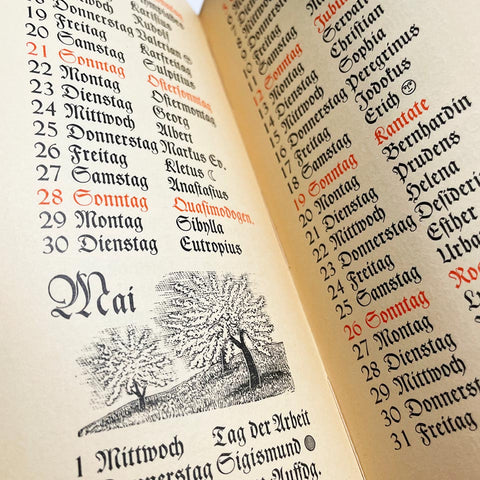 Mittwoch Rudolf
18 Donnerstag Valerian
19 Freitag Karfreitag
20 Samstag Sulpitius
21 Sonntag Ostersonntag
22 Montag Ostermontag
23 Dienstag Georg
24 Mittwoch Albert
25 Donnerstag Markus Ev.
26 Freitag Kletus ☾
27 Samstag Anastasius
28 Sonntag Quasimodogen.
29 Montag Sibylla
30 Dienstag Eutropius
Mai
1 Mittwoch Tag der Arbeit
Donnerstag Sigismund
Auffdg.
12 Sonntag
13 Montag
14 Dienstag Christian
15 Mittwoch Sophia
16 Donnerstag Peregrinus
17 Freitag Jodokus
18 Samstag Erich
19 Sonntag Kantate
20 Montag Bernhardin
21 Dienstag Prudens
22 Mittwoch Helena
23 Donnerstag Desideri
24 Freitag Esther
25 Samstag Urba
26 Sonntag Ro
27 Montag
28 Dienstag
29 Mittwoch
30 Donnerstag
31 Freitag